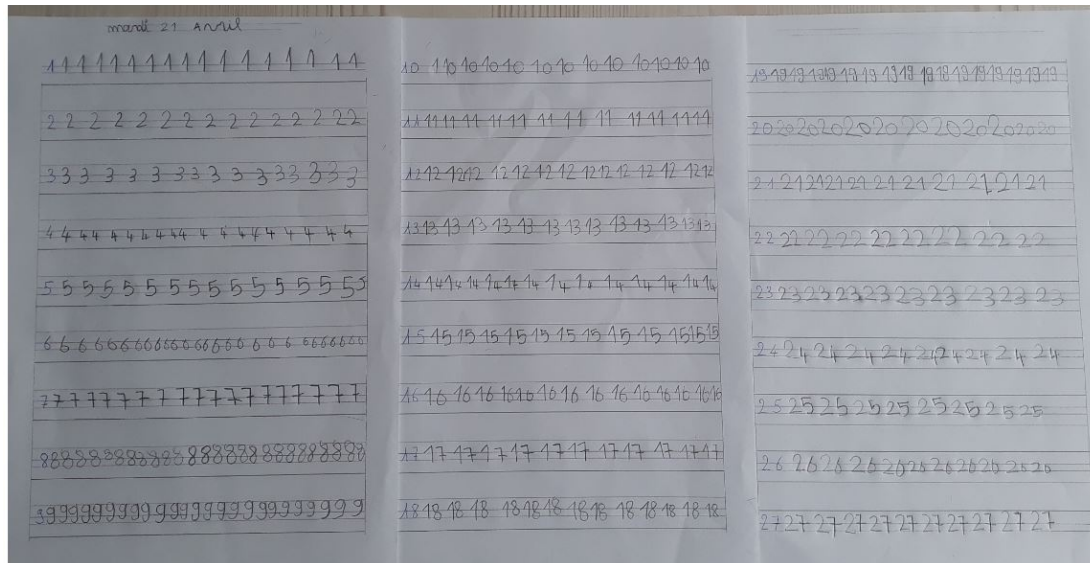 mardi 21 Avril
1 1 1 1 1 1 1 1 1 1 1 1 1 1 1 1 1 1 1
2 2 2 2 2 2 2 2 2 2 2 2 2 2
3 3 3 3 3 3 3 3 3 3 3 3 3 3 3
4 4 4 4 4 4 4 4 4 4 4 4 4 4 4 4 4 4
5 5 5 5 5 5 5 5 5 5 5 5 5 5 5 5
6 6 6 6 6 6 6 6 6 6 6 6 6 6 6 6 6 6 6 6 6 6 6 6
7 7 7 7 7 7 7 7 7 7 7 7 7 7 7 7 7 7 7
8 8 8 8 8 8 8 8 8 8 8 8 8 8 8 8 8 8 8 8 8 8 8 8 8 8
9 9 9 9 9 9 9 9 9 9 9 9 9 9 9 9 9 9 9 9 9 9 9 9
10 10 10 10 10 10 10 10 10 10 10 10 10
11 11 11 11 11 11 11 11 11 11 11 11
12 12 12 12 12 12 12 12 12 12 12 12 12
13 13 13 13 13 13 13 13 13 13 13 13 13 13
14 14 14 14 14 14 14 14 14 14 14 14 14
15 15 15 15 15 15 15 15 15 15 15 15 15
16 16 16 16 16 16 16 16 16 16 16 16 16 16
17 17 17 17 17 17 17 17 17 17 17 17
18 18 18 18 18 18 18 18 18 18 18 18 18
19 19 19 19 19 19 19 19 19 19 18 19 19 19 19 19
20 20 20 20 20 20 20 20 20 20 20
21 21 21 21 21 21 21 21 21 21 21
22 22 22 22 22 22 22 22 22
23 23 23 23 23 23 23 23 23 23
24 24 24 24 24 24 24 24 24 24
25 25 25 25 25 25 25 25 25
26 26 26 26 26 26 26 26 26 26 26
27 27 27 27 27 27 27 27 27 27 27